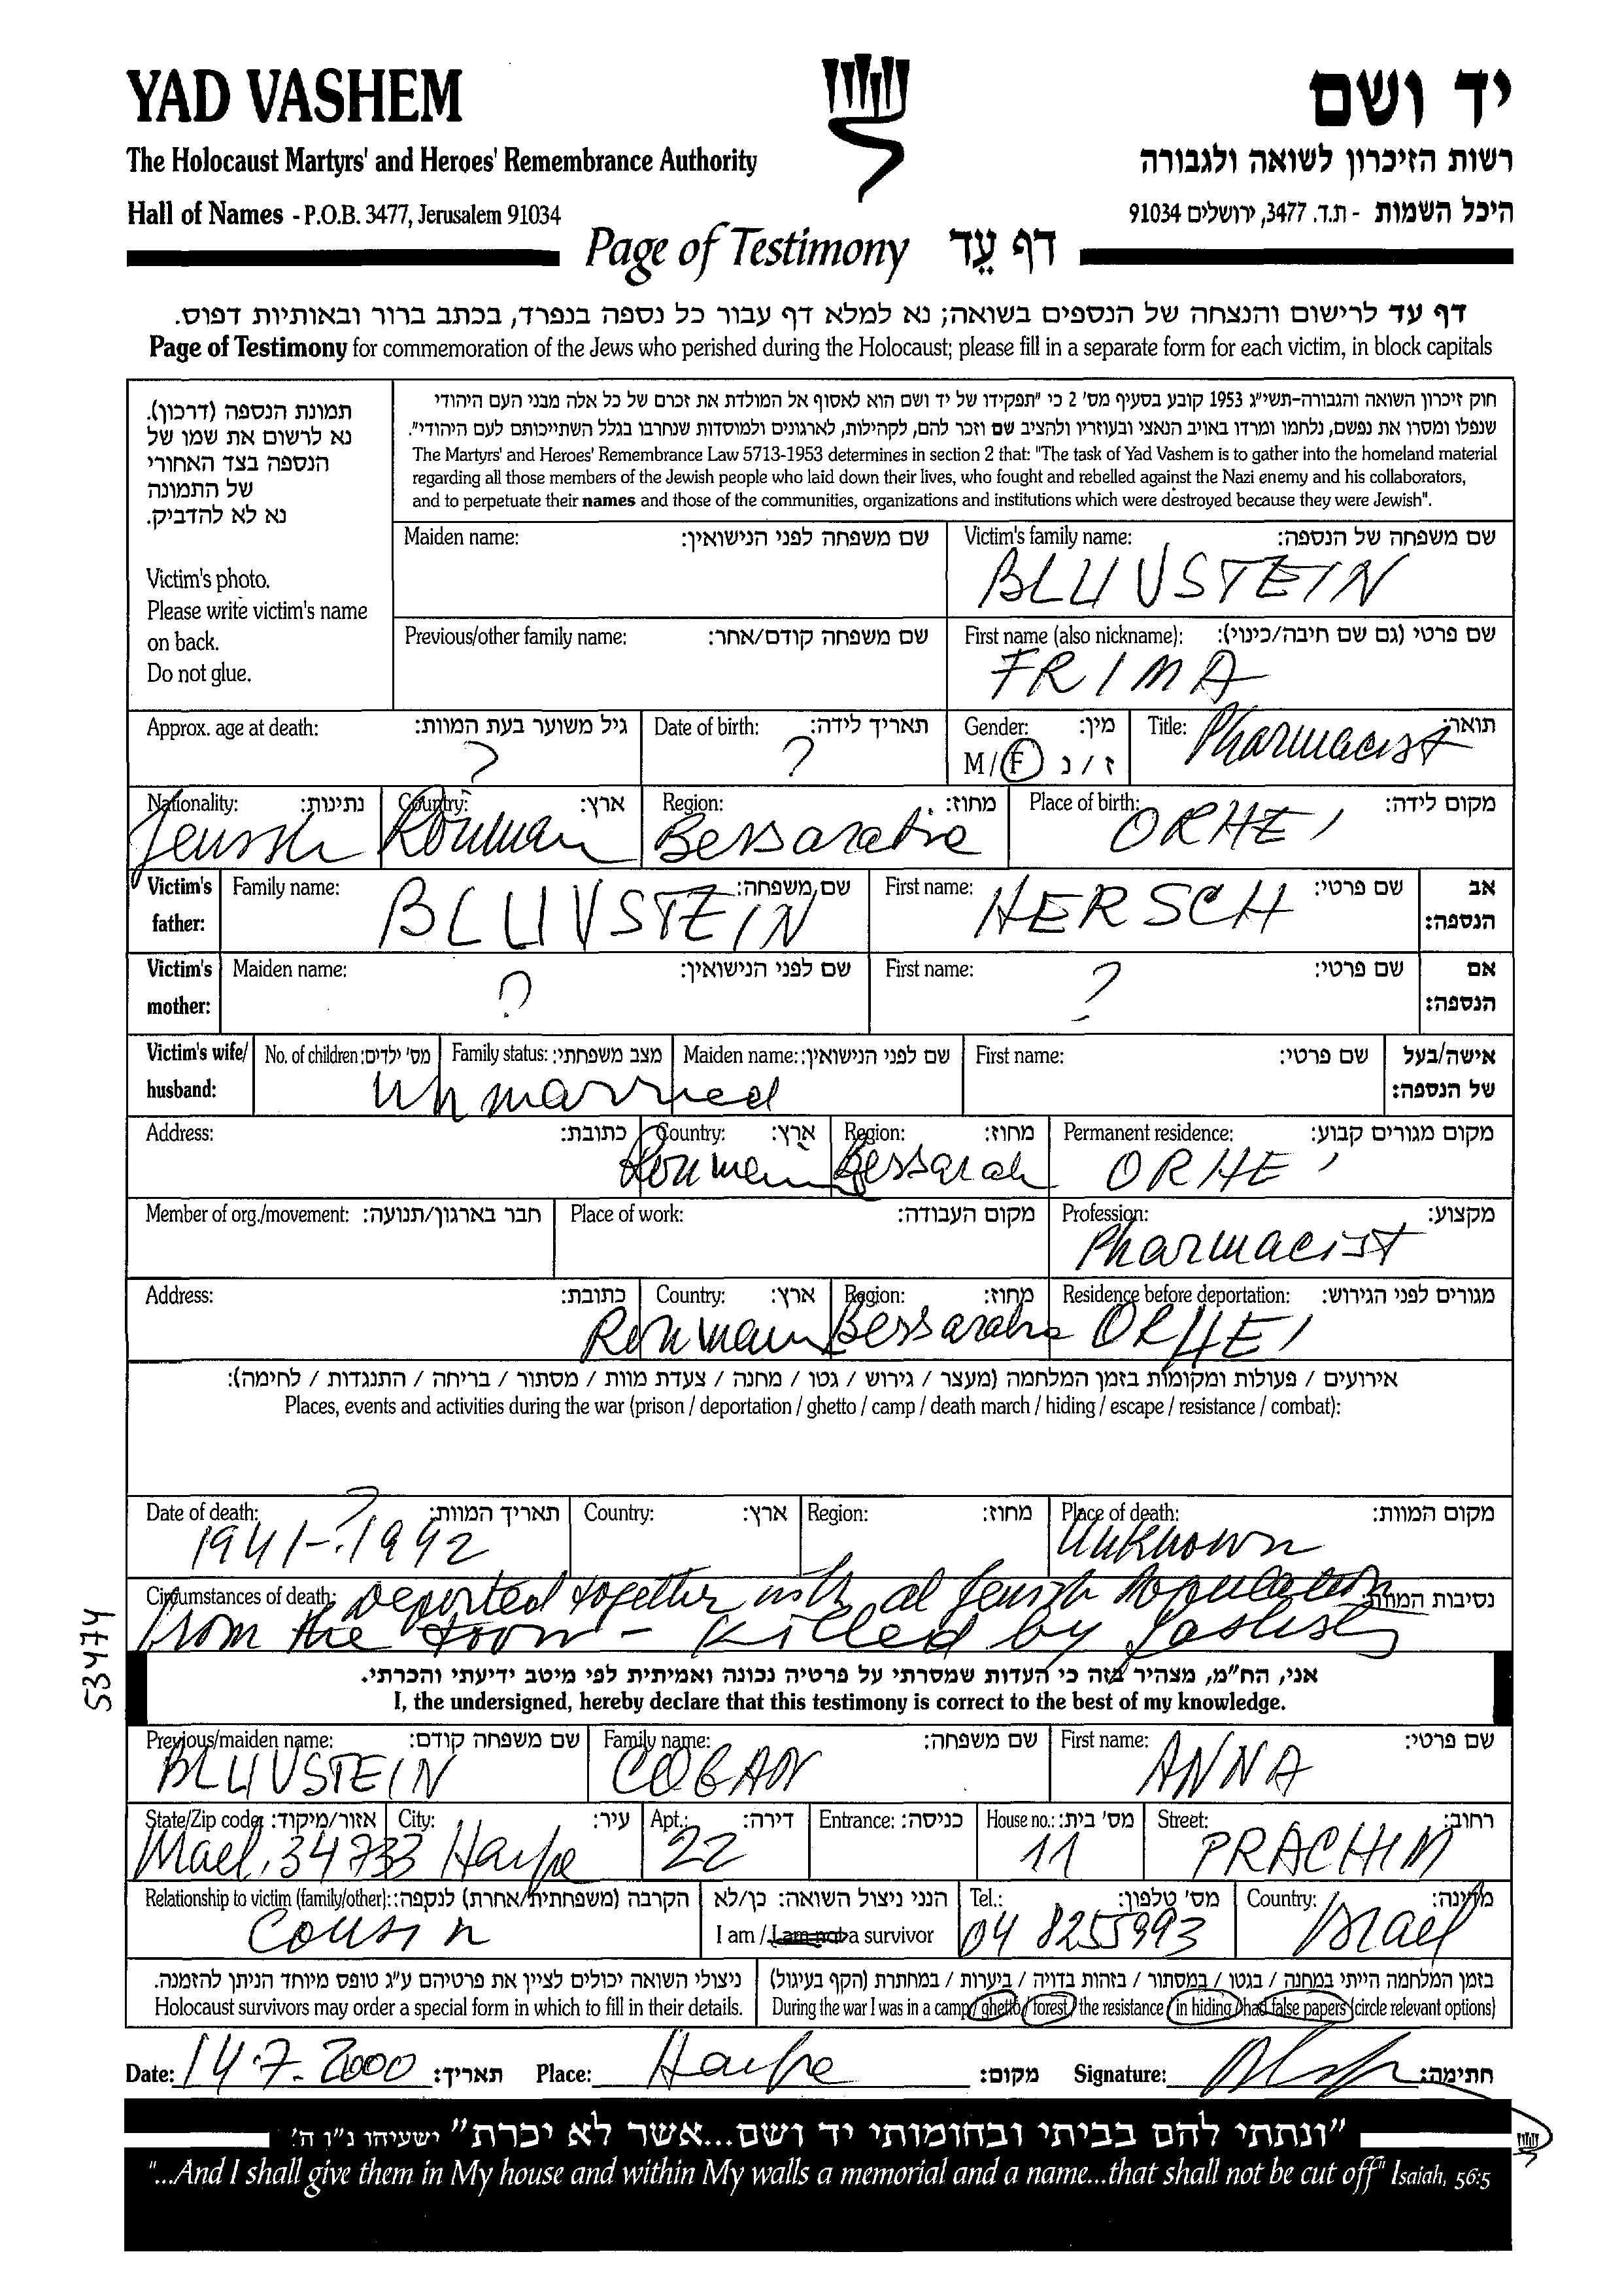 YAD VASHEM
יד ושם
The Holocaust Martyrs' and Heroes' Remembrance Authority
רשות הזיכרון לשואה ולגבורה
Hall of Names - P.O.B. 3477, Jerusalem 91034
היכל השמות - ת.ד. 3477, ירושלים 91034
Page of Testimony דף עֵד
דף עד לרישום והנצחה של הנספים בשואה; נא למלא דף עבור כל נספה בנפרד, בכתב ברור ובאותיות דפוס.
Page of Testimony for commemoration of the Jews who perished during the Holocaust; please fill in a separate form for each victim, in block capitals
תמונת הנספה (דרכון).
נא לרשום את שמו של
הנספה בצד האחורי
של התמונה
נא לא להדביק.
Victim's photo.
Please write victim's name
on back.
Do not glue.
חוק זיכרון השואה והגבורה-תשי"ג 1953 קובע בסעיף מס' 2 כי "תפקידו של יד ושם הוא לאסוף אל המולדת את זכרם של כל אלה מבני העם היהודי
שנפלו ומסרו את נפשם, נלחמו ומרדו באויב הנאצי ובעוזריו ולהציב שם וזכר להם, לקהילות, לארגונים ולמוסדות שנחרבו בגלל השתייכותם לעם היהודי".
The Martyrs' and Heroes' Remembrance Law 5713-1953 determines in section 2 that: "The task of Yad Vashem is to gather into the homeland material
regarding all those members of the Jewish people who laid down their lives, who fought and rebelled against the Nazi enemy and his collaborators,
and to perpetuate their names and those of the communities, organizations and institutions which were destroyed because they were Jewish".
Maiden name: שם משפחה לפני הנישואין: Victim's family name: שם משפחה של הנספה:
BLUVSTEIN
Previous/other family name: שם משפחה קודם/אחר: First name (also nickname): שם פרטי (גם שם חיבה/כינוי):
FRIMA
Approx. age at death: גיל משוער בעת המוות: Date of birth: תאריך לידה: Gender: מין: Title: תואר:
? ? M / F ז / נ Pharmacist
Nationality: נתינות: Country: ארץ: Region: מחוז: Place of birth: מקום לידה:
Jewish Rouman Bessarabie ORHEI
Victim's father: Family name: שם משפחה: First name: שם פרטי: אב הנספה:
BLUVSTEIN HERSCH
Victim's mother: Maiden name: שם לפני הנישואין: First name: שם פרטי: אם הנספה:
? ?
Victim's wife/ husband: No. of children: מס' ילדים: Family status: מצב משפחתי: Maiden name: שם לפני הנישואין: First name: שם פרטי: אישה/בעל של הנספה:
Unmarried
Address: כתובת: Country: ארץ: Region: מחוז: Permanent residence: מקום מגורים קבוע:
Roumain Bessarab ORHEI
Member of org./movement: חבר בארגון/תנועה: Place of work: מקום העבודה: Profession: מקצוע:
Pharmacist
Address: כתובת: Country: ארץ: Region: מחוז: Residence before deportation: מגורים לפני הגירוש:
Roumain Bessarabie ORHEI
אירועים / פעולות ומקומות בזמן המלחמה (מעצר / גירוש / גטו / מחנה / צעדת מוות / מסתור / בריחה / התנגדות / לחימה):
Places, events and activities during the war (prison / deportation / ghetto / camp / death march / hiding / escape / resistance / combat):
Date of death: תאריך המוות: Country: ארץ: Region: מחוז: Place of death: מקום המוות:
1941-?1942 Unknown
Circumstances of death: נסיבות המוות:
Deported together with al Jewish Population
from the town - killed by
53474
אני, הח"מ, מצהיר בזה כי העדות שמסרתי על פרטיה נכונה ואמיתית לפי מיטב ידיעתי והכרתי.
I, the undersigned, hereby declare that this testimony is correct to the best of my knowledge.
Previous/maiden name: שם משפחה קודם: Family name: שם משפחה: First name: שם פרטי:
BLUVSTEIN COGAN ANNA
State/Zip code: אזור/מיקוד: City: עיר: Apt.: דירה: Entrance: כניסה: House no.: מס' בית: Street: רחוב:
34733 Haifa 22 11 PRACHIM
Relationship to victim (family/other): הקרבה (משפחתית/אחרת) לנספה: הנני ניצול השואה: כן/לא Tel.: מס' טלפון: Country: מדינה:
Cousin I am / I am not a survivor 04 8255993 Israel
ניצולי השואה יכולים לציין את פרטיהם ע"ג טופס מיוחד הניתן להזמנה. בזמן המלחמה הייתי במחנה / בגטו / במסתור / בזהות בדויה / ביערות / במחתרת (הקף בעיגול)
Holocaust survivors may order a special form in which to fill in their details. During the war I was in a camp / ghetto / forest / the resistance / in hiding / had false papers (circle relevant options)
Date: 14.7.2000 תאריך: Place: Haifa מקום: Signature: חתימה:
"ונתתי להם בביתי ובחומותי יד ושם...אשר לא יכרת" ישעיהו נ"ו ה'
"...And I shall give them in My house and within My walls a memorial and a name...that shall not be cut off" Isaiah, 56:5